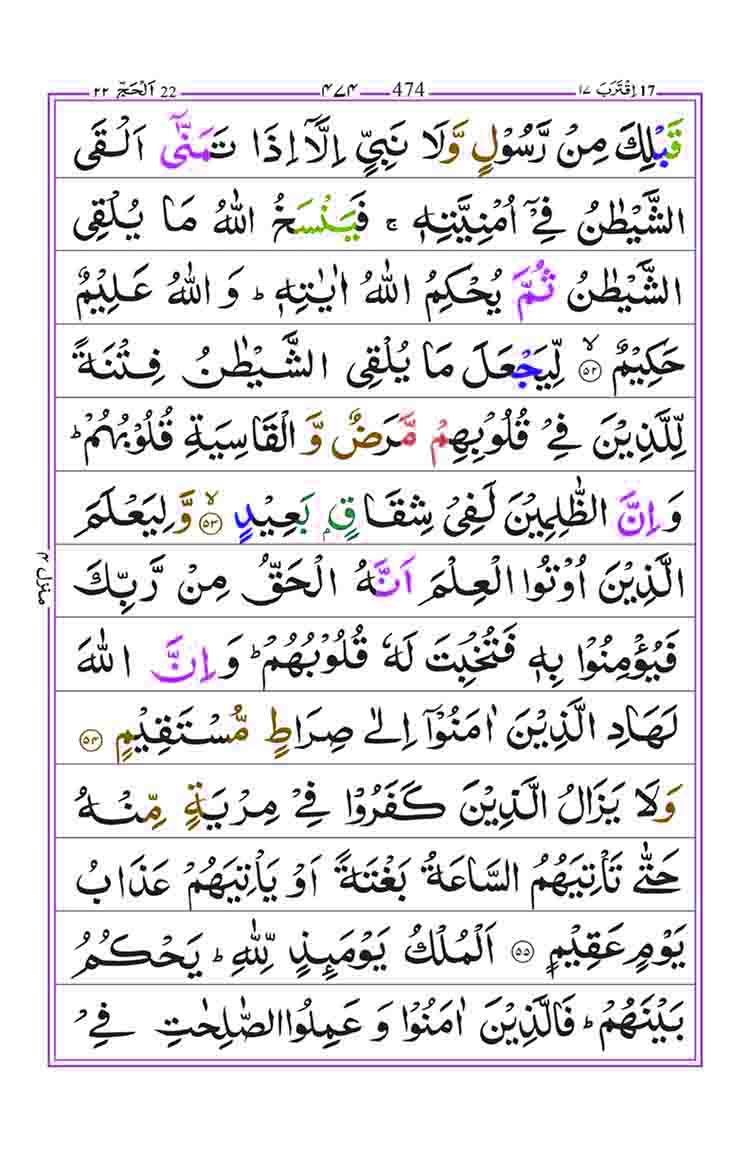 17 اِقْتَرَبَ ١٧ 474 ۴۷۴ 22 اَلْحَجّ ٢٢
قَبْلِكَ مِنْ رَّسُوْلٍ وَّلَا نَبِيٍّ اِلَّاۤ اِذَا تَمَنّٰۤى اَلْقَى
الشَّيْطٰنُ فِيْۤ اُمْنِيَّتِهٖ ۚ فَيَنْسَخُ اللّٰهُ مَا يُلْقِى
الشَّيْطٰنُ ثُمَّ يُحْكِمُ اللّٰهُ اٰيٰتِهٖ ؕ وَ اللّٰهُ عَلِيْمٌ
حَكِيْمٌ ۙ‏﴿۵۲﴾ لِّيَجْعَلَ مَا يُلْقِى الشَّيْطٰنُ فِتْنَةً
لِّلَّذِيْنَ فِيْ قُلُوْبِهِمْ مَّرَضٌ وَّ الْقَاسِيَةِ قُلُوْبُهُمْ ؕ
وَ اِنَّ الظّٰلِمِيْنَ لَفِيْ شِقَاقٍۭ بَعِيْدٍ ۙ‏﴿۵۳﴾ وَّ لِيَعْلَمَ
الَّذِيْنَ اُوْتُوا الْعِلْمَ اَنَّهُ الْحَقُّ مِنْ رَّبِّكَ
فَيُؤْمِنُوْا بِهٖ فَتُخْبِتَ لَهٗ قُلُوْبُهُمْ ؕ وَ اِنَّ اللّٰهَ
لَهَادِ الَّذِيْنَ اٰمَنُوْۤا اِلٰى صِرَاطٍ مُّسْتَقِيْمٍ ﴿۵۴﴾
وَلَا يَزَالُ الَّذِيْنَ كَفَرُوْا فِيْ مِرْيَةٍ مِّنْهُ
حَتّٰى تَاْتِيَهُمُ السَّاعَةُ بَغْتَةً اَوْ يَاْتِيَهُمْ عَذَابُ
يَوْمٍ عَقِيْمٍ ﴿۵۵﴾ اَلْمُلْكُ يَوْمَىِٕذٍ لِّلّٰهِ ؕ يَحْكُمُ
بَيْنَهُمْ ؕ فَالَّذِيْنَ اٰمَنُوْا وَ عَمِلُوا الصّٰلِحٰتِ فِيْ
منزل ۴